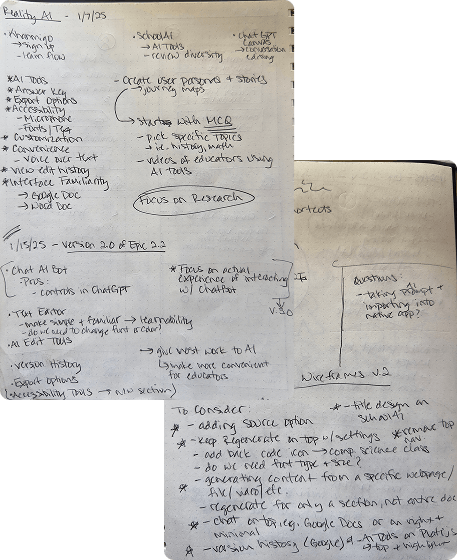 Reality AI - 1/7/25
• Khanmigo
→ sign up
- learn flow
• SchoolAI
→ AI Tools
- review diversity
• ChatGPT
Canvas
→ conversation
editing
* AI Tools
* Answer Key
* Export Options
* Accessibility
- Microphone
- Fonts/Text
* Customization
* Convenience
- Voice over text
* View edit history
* Interface Familiarity
→ Google Doc
→ Word Doc
- Create user personas + stories
→ journey maps
→ start with MCQ
- pick specific topics
→ i.e. history, math
- videos of educators using
AI tools
Focus on Research
1/15/25 - Version 2.0 of Epic 2.2
• Chat AI Bot
- Pros:
- controls in ChatGPT
* Focus on actual
experience of interacting
w/ chatbot
V. 3.0
• Text Editor
- make simple + familiar → learnability
- do we need to change font or color?
• AI Edit Tools
→ give most work to AI
↳ make more convenient
for educators
• Version History
• Export options
• Accessibility Tools → n/w section)
Questions:
- taking AI prompt +
importing into
native app?
Wireframes v.2
To Consider:
* - title design on
SchoolAI
* - adding source option
* - keep Regenerate on top w/ settings
* remove top
nav
- add back code icon → comp. science class
- do we need font type + size?
* - generating content from a specific webpage/
file/ward/etc.
- regenerate for only a section, not entire doc
* - chat on top, e.g. Google Docs or on right +
minimal
* - version history (Google)